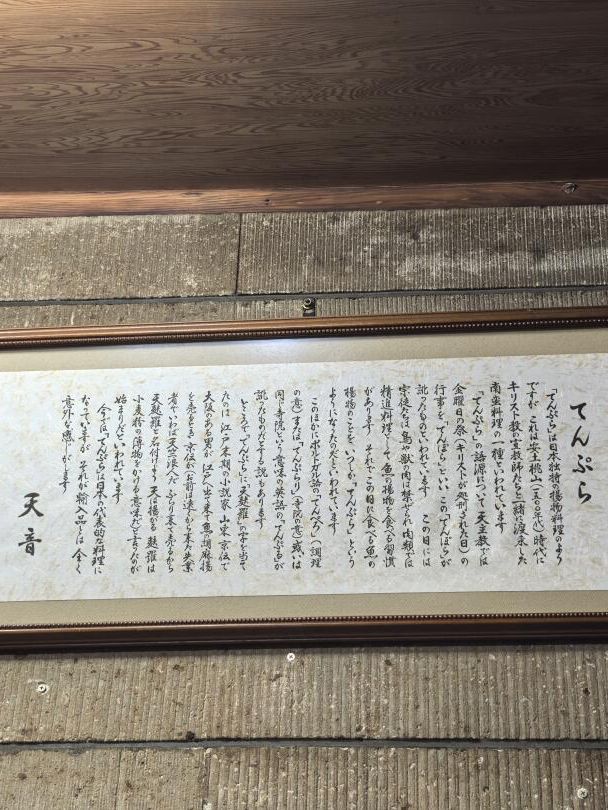 てんぷら
「てんぷら」は日本独特の揚物料理のよう
ですが これは安土桃山(一五〇〇年代)時代に
キリスト教の宣教師たちと一緒に渡来した
南蛮料理の一種といわれています
「てんぷら」の語源について 天主教では
金曜日の祭(キリストが処刑された日)の
行事を、「てんぽら」といい、この「てんぽら」が
訛ったものといわれています この日には
宗徒たちは 鳥や獣の肉は禁ぜられ 肉類では
精進料理として 魚の揚物を食べる習慣
があります それで この日に食べる魚の
揚物のことを いつしか「てんぷら」という
ようになったのだといわれています
このほかにポルトガル語の「てんぺろ」(調理
の意)または「てんぷらり」(寺院の意)或いは
同じ寺院という意味の英語の「てんぷる」が
訛ったものだとする説もあります
ところで「てんぷら」に「天麩羅」の字を当て
たのは 江戸末期の小説家 山東京伝で
大阪のある男が 江戸へ出て来て魚の胡麻揚
を売るとき 京伝が「お前は遠くから来た失業
者でいわば天竺浪人だ ふらり来て売るから
天麩羅と名付けよ 天は揚がる 麩羅は
小麦粉の薄物をかける意味だ」と言ったのが
始まりだといわれています
今では「てんぷら」は日本の代表的な料理に
なっていますが それが輸入品とは 全く
意外な感がします
天音